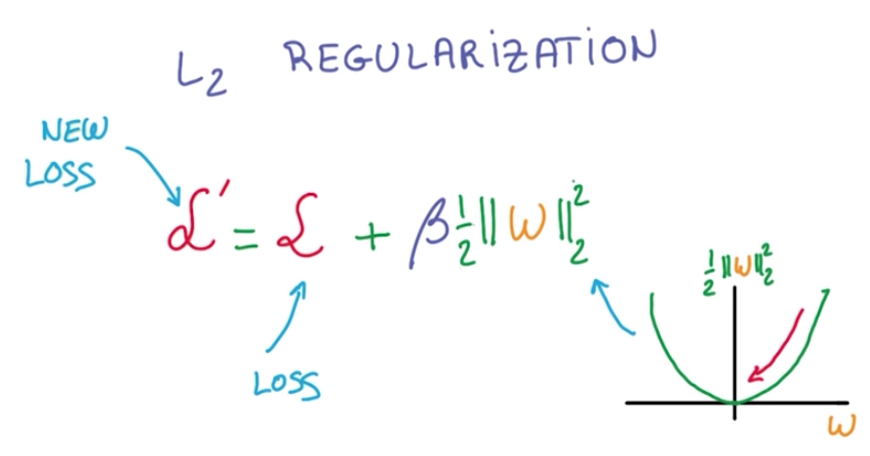 L₂ REGULARIZATION
NEW
LOSS
ℒ' = ℒ + β ½ ||W||₂²
LOSS
½ ||W||₂²
W